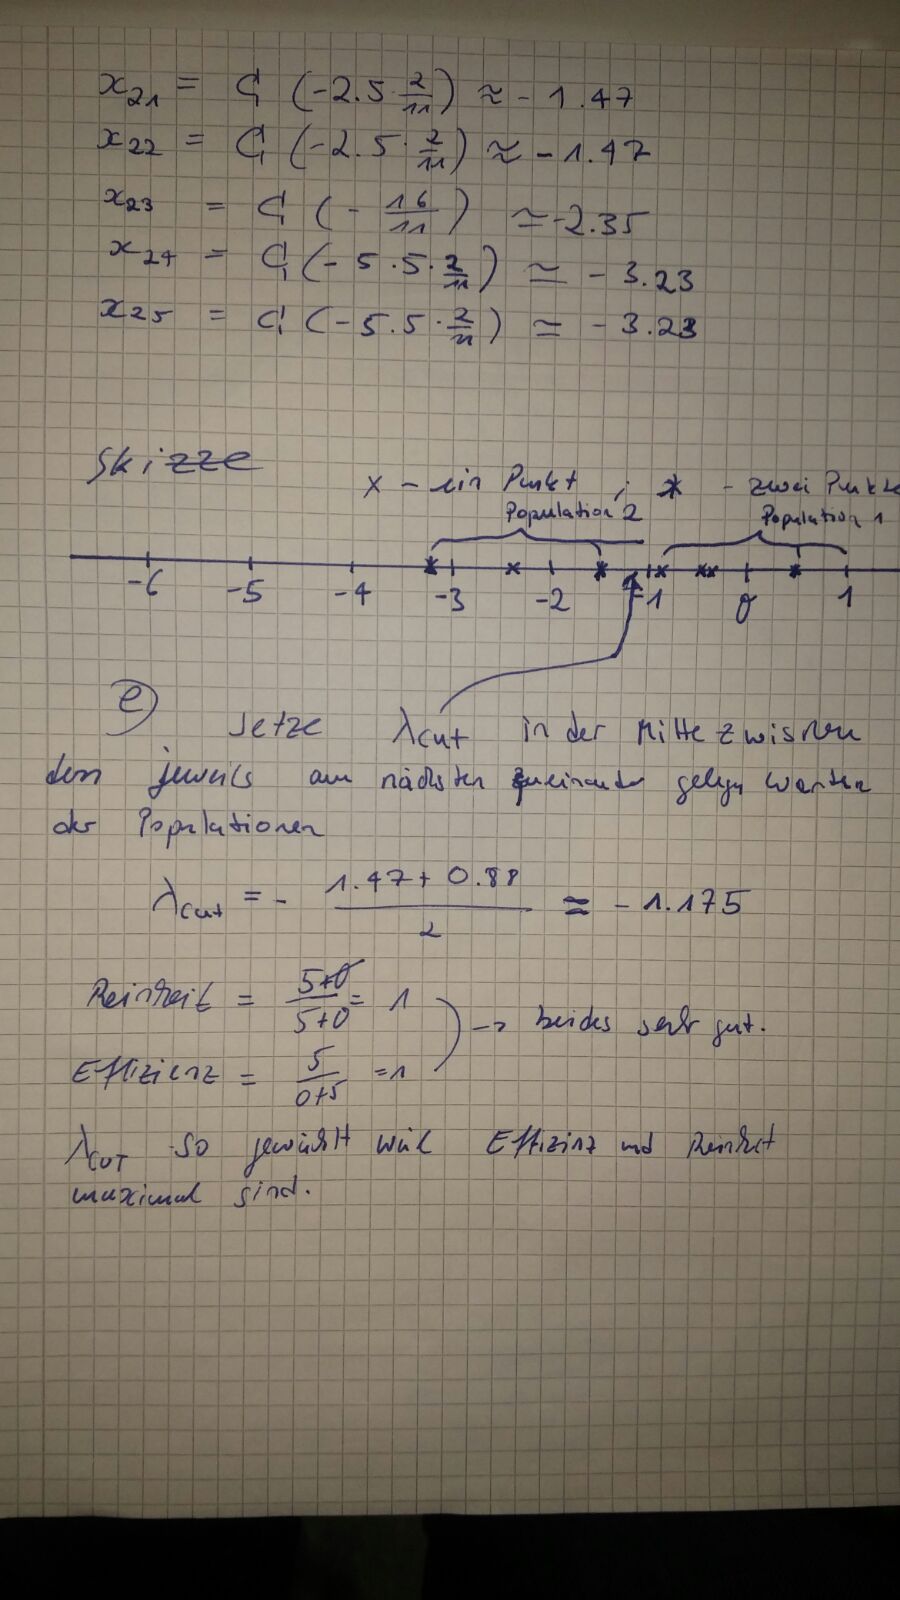 x₂₁ = C₁ (-2.5 · 2/11) ≈ -1.47
x₂₂ = C₁ (-2.5 · 2/11) ≈ -1.47
x₂₃ = C₁ (- 16/11) ≃ -2.35
x₂₄ = C₁ (-5.5 · 2/11) ≃ -3.23
x₂₅ = C₁ (-5.5 · 2/11) ≃ -3.23
Skizze
x - ein Punkt ; * - zwei Punkte
Population 2 Population 1
-6 -5 -4 -3 -2 -1 0 1
e) Setze λcut in der Mitte zwischen
den jeweils am nächsten zueinander gelegn Werten
der Populationen
λcut = - (1.47 + 0.88)/2 ≈ -1.175
Reinheit = (5+0)/(5+0) = 1
-> beides sehr gut.
Effizienz = 5/(0+5) = 1
λcut so gewählt weil Effizinz und Reinheit
maximal sind.